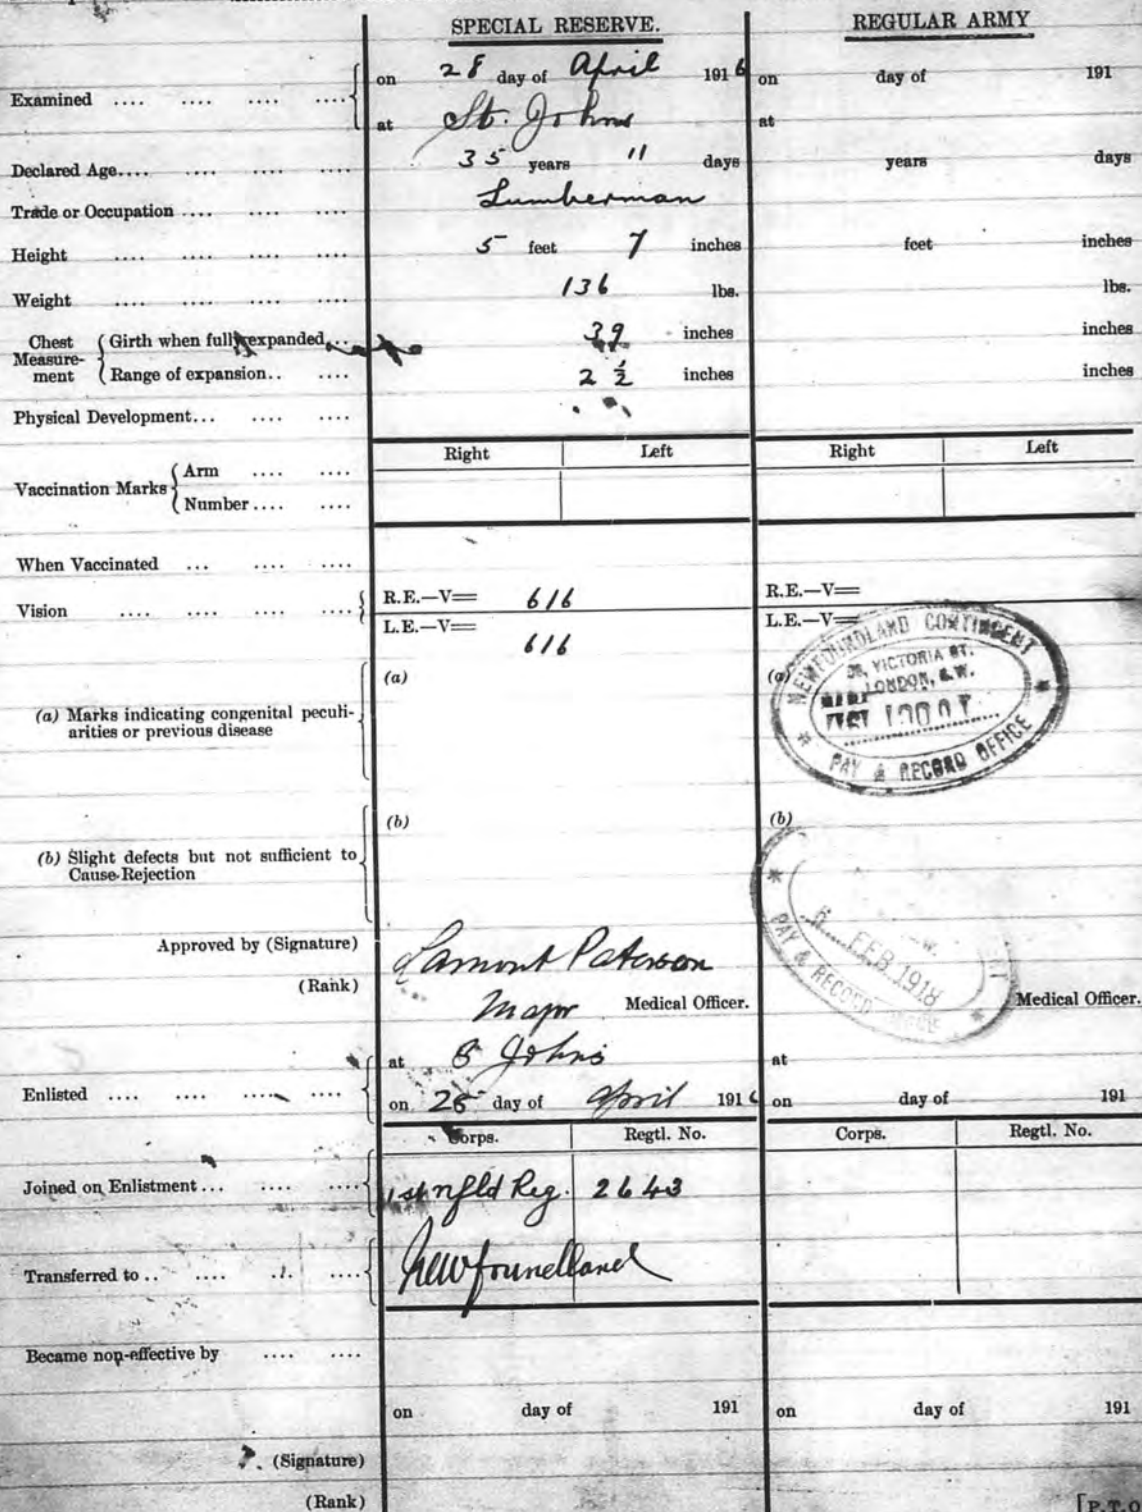 SPECIAL RESERVE. REGULAR ARMY
Examined .... .... .... .... on 28 day of April 1916 on day of 191
at St. Johns at
Declared Age.... .... .... .... 35 years 11 days years days
Trade or Occupation .... .... .... Lumberman
Height .... .... .... .... 5 feet 7 inches feet inches
Weight .... .... .... .... 136 lbs. lbs.
Chest Measure-ment { Girth when fully expanded... 39 inches inches
Range of expansion.. .... 2 ½ inches inches
Physical Development... .... ....
Right Left Right Left
Vaccination Marks { Arm .... ....
Number.... ....
When Vaccinated ... .... ....
Vision .... .... .... .... R.E.—V= 6/6 R.E.—V=
L.E.—V= 6/6 L.E.—V=
NEWFOUNDLAND CONTINGENT
VICTORIA ST.
LONDON, S.W.
PAY & RECORD OFFICE
(a) Marks indicating congenital peculi-
arities or previous disease
(a) (a)
(b) (b)
(b) Slight defects but not sufficient to
Cause Rejection
FEB 1918
PAY & RECORD OFFICE
Approved by (Signature) Lamont Paterson
(Rank) Major Medical Officer. Medical Officer.
at S Johns at
Enlisted .... .... .... .... on 25 day of April 1916 on day of 191
Corps. Regtl. No. Corps. Regtl. No.
Joined on Enlistment... .... .... 1st nfld Reg. 2643
Transferred to .. .... .... .... Newfoundland
Became non-effective by .... ....
on day of 191 on day of 191
(Signature)
(Rank)
[P.T.O